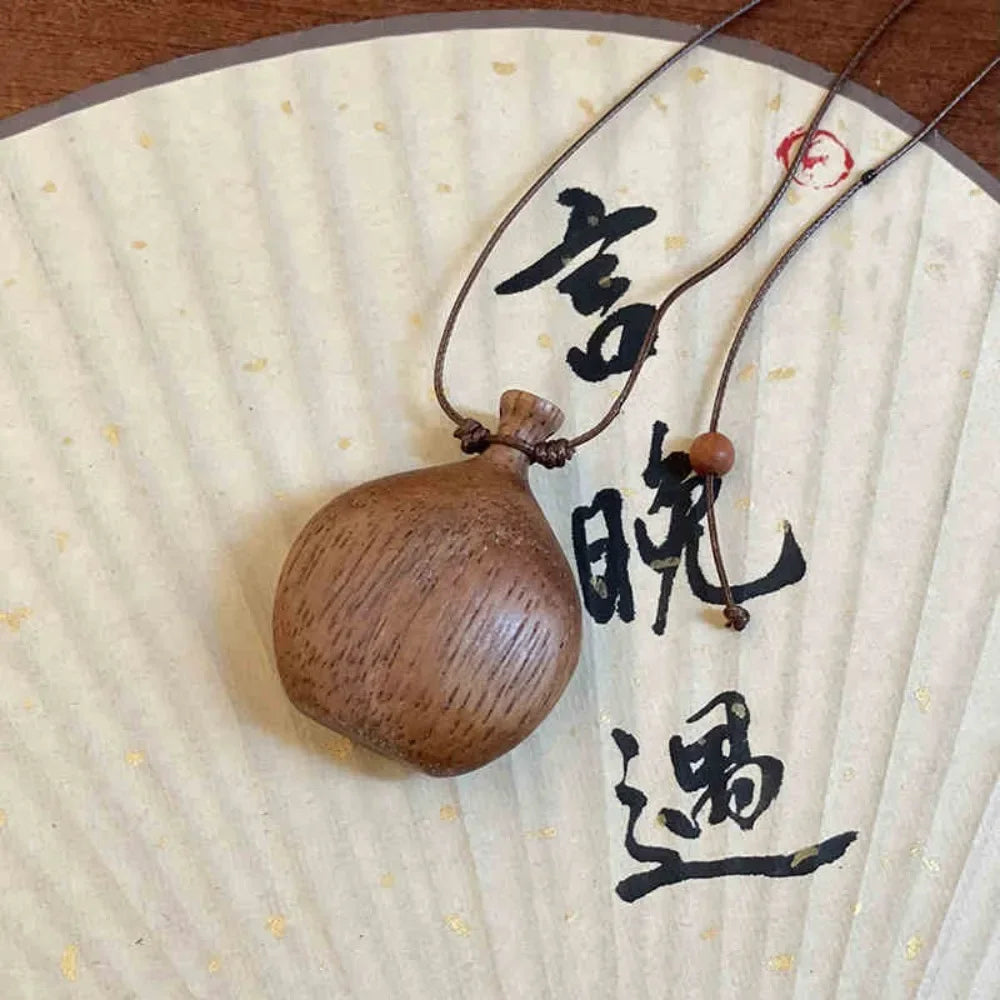 言
晚
遇